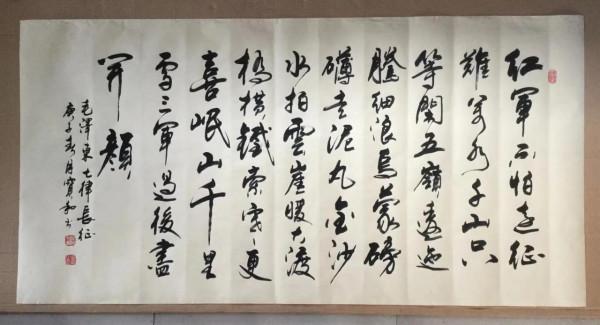 红軍不怕遠征
難萬水千山只
等閑五嶺逶迤
騰細浪烏蒙磅
礴走泥丸金沙
水拍雲崖暖大渡
橋橫鐵索寒更
喜岷山千里
雪三軍過後盡
開顏
毛澤東七律長征
庚子春月寶和书